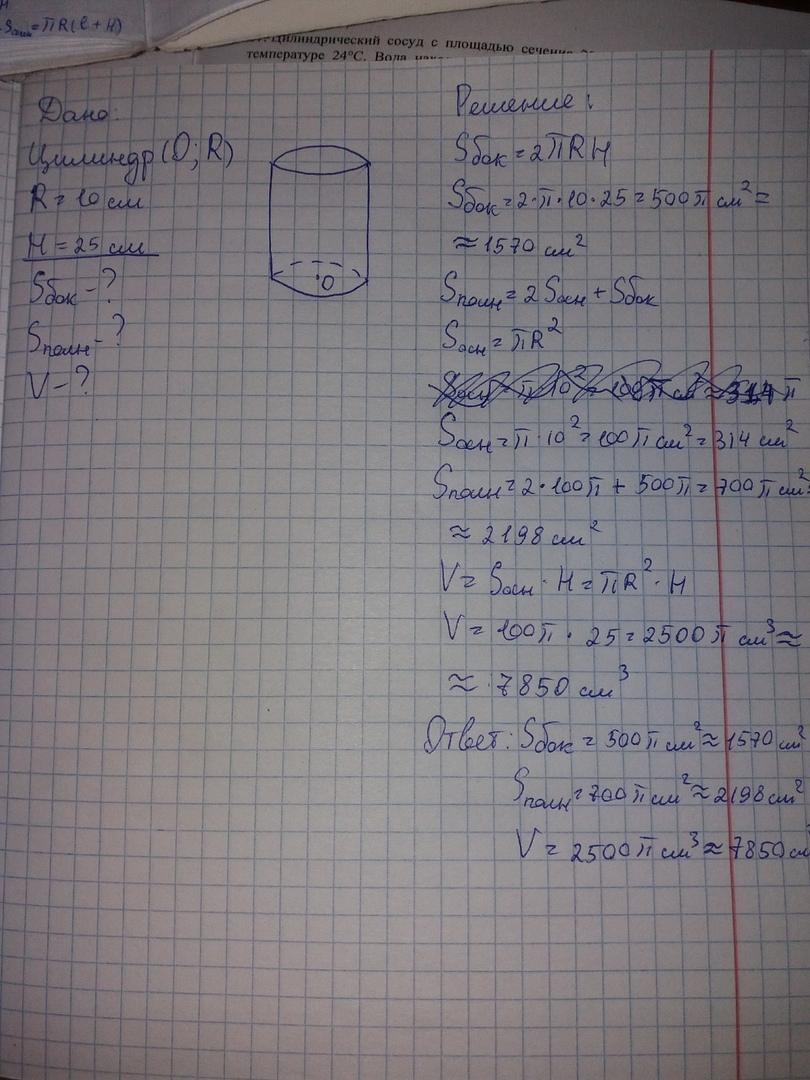 Sосн=πR(l+H)
Цилиндрический сосуд с площадью сечения
температуре 24°С. Вода
Дано:
Цилиндр (O; R)
R = 10 см
H = 25 см
Sбок - ?
Sполн - ?
V - ?
O
Решение:
Sбок = 2πRH
Sбок = 2·π·10·25 = 500π см² =
≈ 1570 см²
Sполн = 2Sосн + Sбок
Sосн = πR²
Sосн = π·10² = 100π см² = 314 см²
Sполн = 2·100π + 500π = 700π см²
≈ 2198 см²
V = Sосн · H = πR² · H
V = 100π · 25 = 2500π см³ ≈
≈ 7850 см³
Ответ: Sбок = 500π см² ≈ 1570 см²
Sполн = 700π см² ≈ 2198 см²
V = 2500π см³ ≈ 7850 см